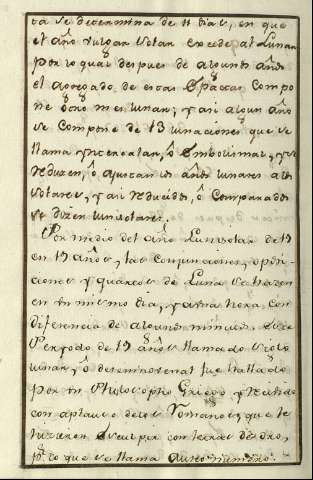 ta se determina de 11 dias, en que
el año vulgar solar excede al Lunar
por lo qual despues de algunos años
el agregado de estas Epactas compo
ne otro mes lunar, y asi algun año
se compone de 13 lunaciones que se
llama yntercalar, ô Embolismal, y se
reduzen, ô ajustan los años lunares a los
solares, y asi reducidos, ô comparados
se dizen lunisolares.
Por medio del año Lunisolar de 19
en 19 años, las conjunciones, oposi
ciones y quartos de Luna caen
en un mismo dia, y a una hora con
diferencia de algunos minutos. Este
Periodo de 19 años llamado siclo
lunar, ô decemnovenal fue hallado
por un Philosopho Griego y recibido
con aplauso de los Romanos, que le
hizieron esculpir con letras de oro,
por lo que se llama Aureo numero.